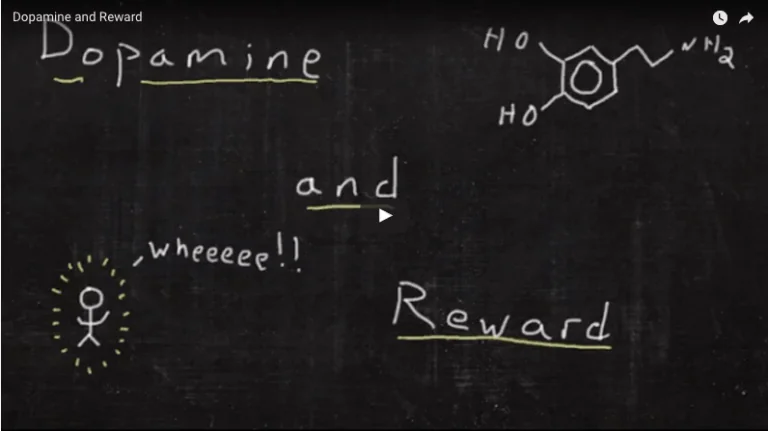 Dopamine and Reward
Dopamine
HO
NH2
HO
and
wheeeee!!
Reward